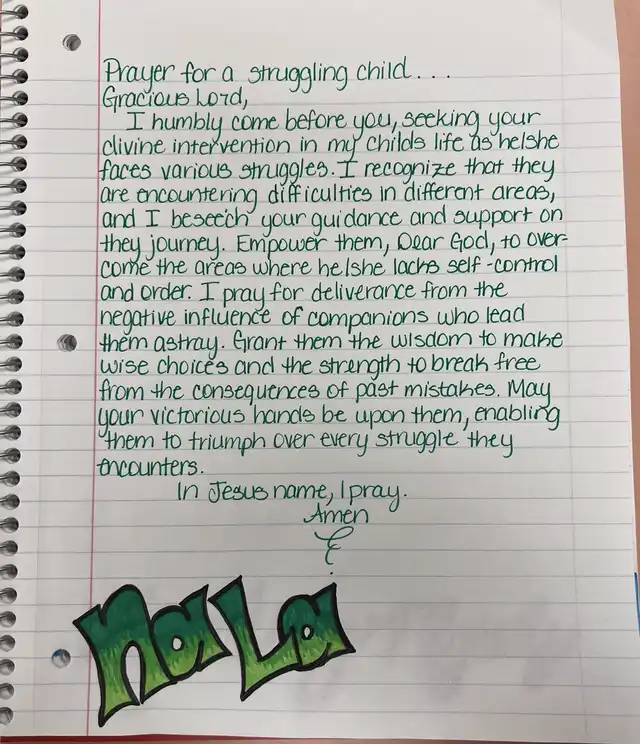 Prayer for a struggling child...
Gracious Lord,
I humbly come before you, seeking your
divine intervention in my childs life as he/she
faces various struggles. I recognize that they
are encountering difficulties in different areas,
and I beseech your guidance and support on
they journey. Empower them, Dear God, to over-
come the areas where he/she lacks self-control
and order. I pray for deliverance from the
negative influence of companions who lead
them astray. Grant them the wisdom to make
wise choices and the strength to break free
from the consequences of past mistakes. May
your victorious hands be upon them, enabling
them to triumph over every struggle they
encounters.
In Jesus name, I pray.
Amen
NaLa